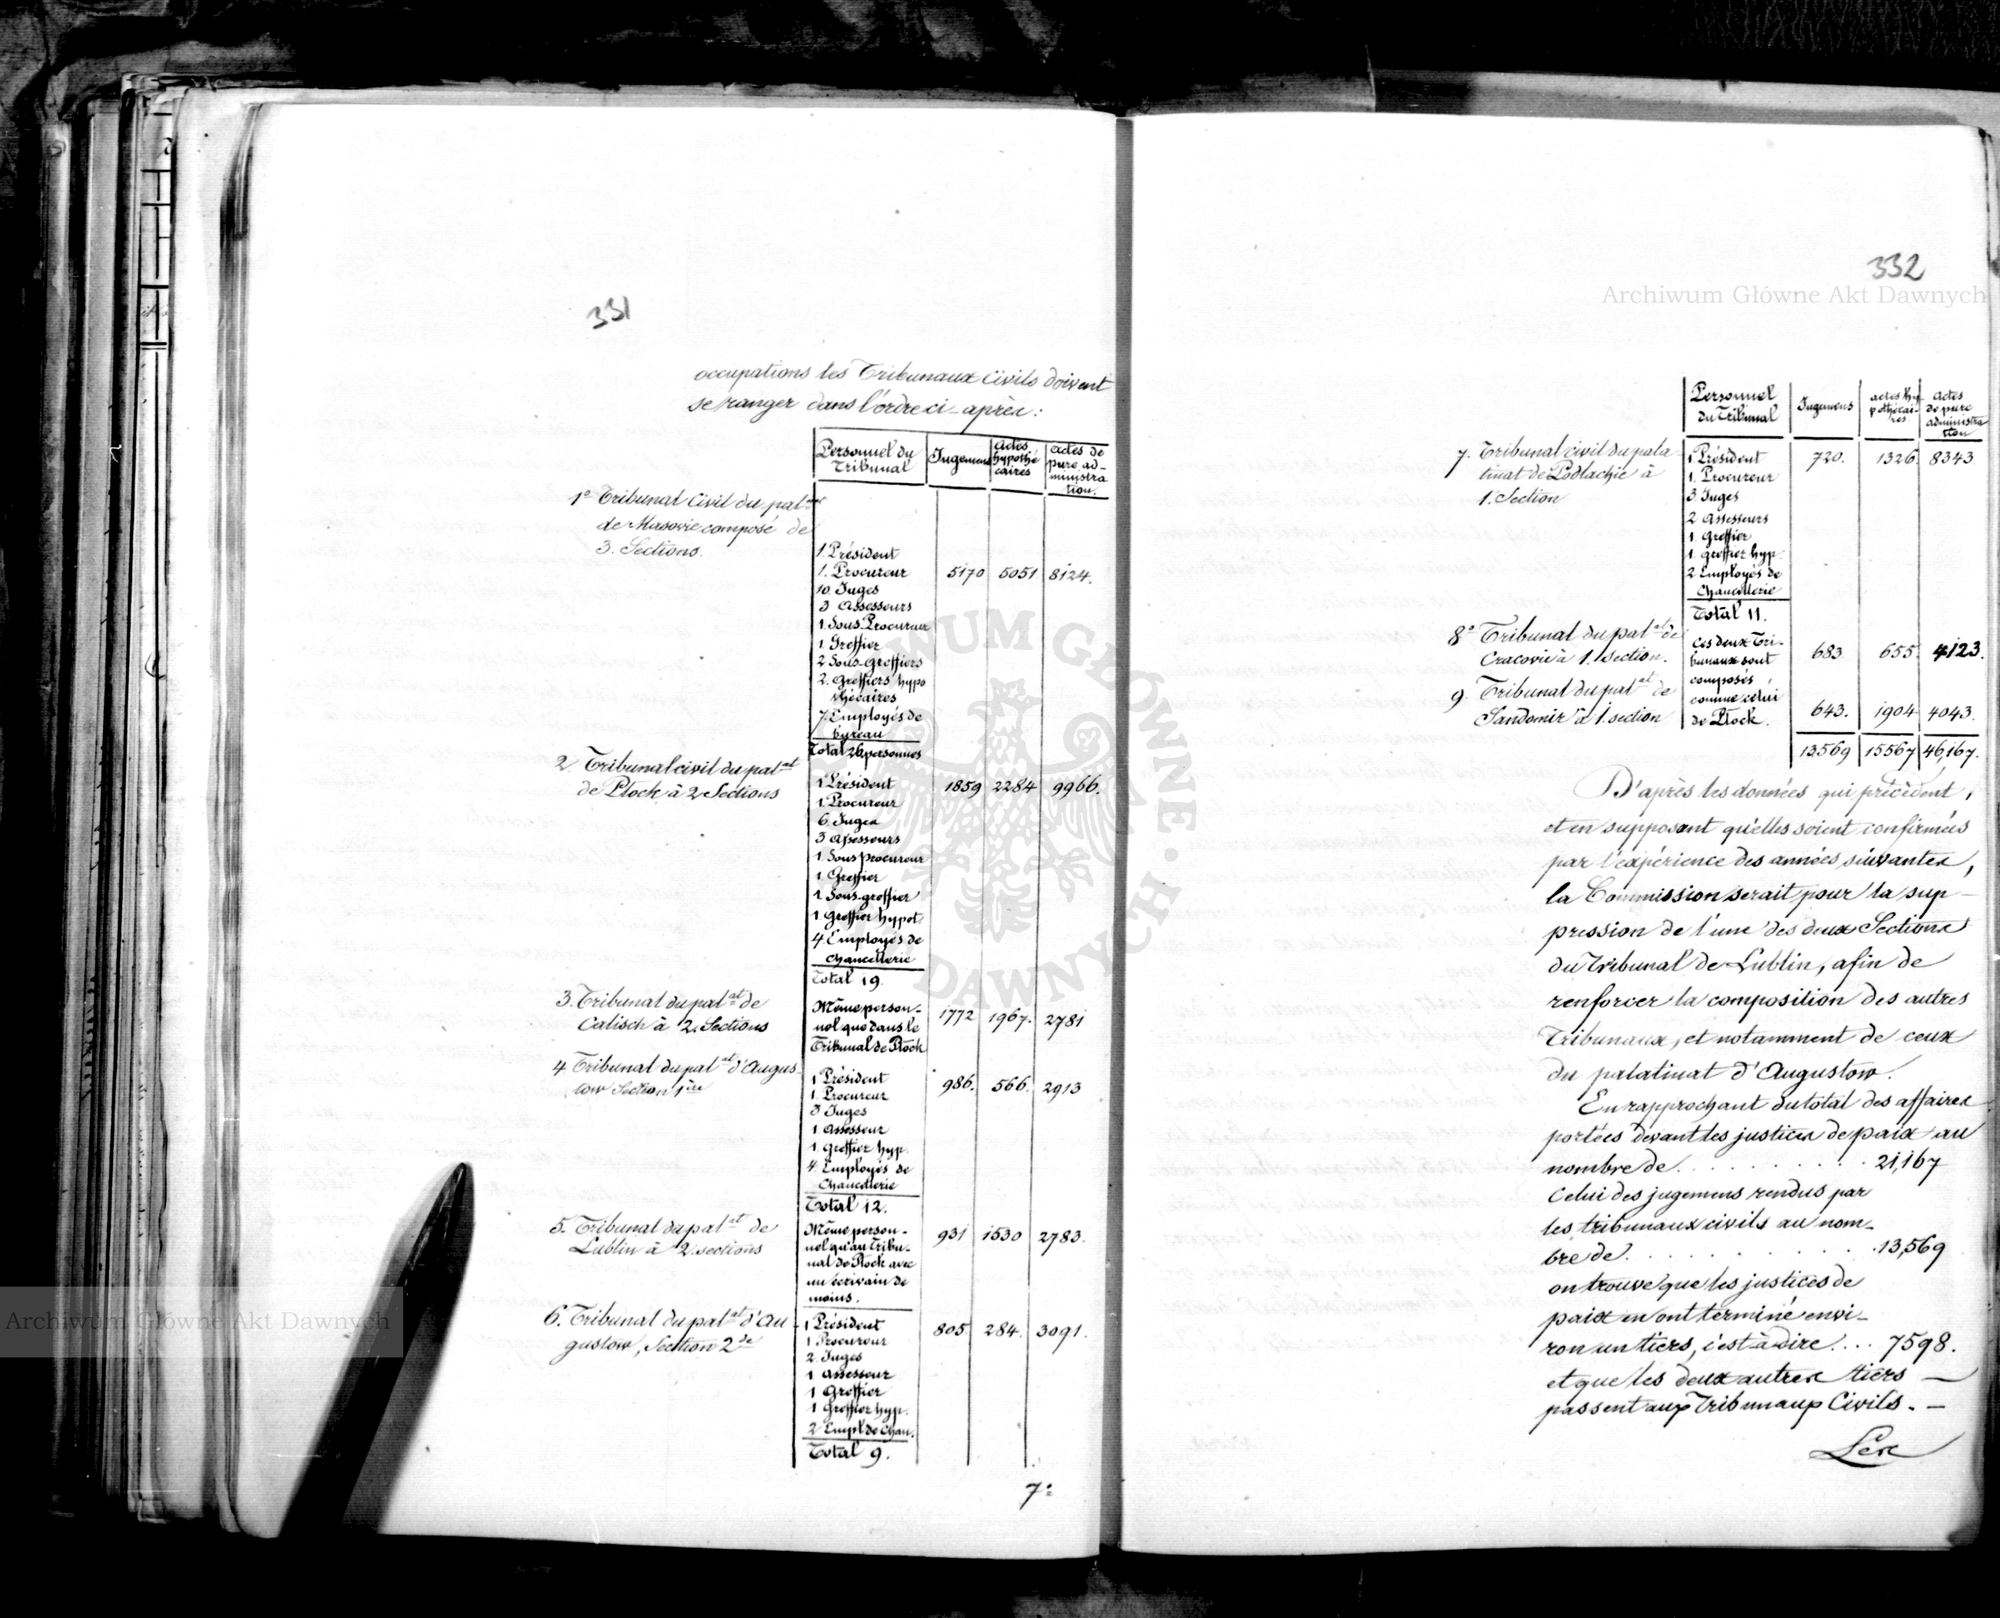 331
occupations les Tribunaux Civils doivent
se ranger dans l'ordre ci-après:
Personnel du Tribunal | Jugemens | Actes hypothécaires | Actes de pure administration.
1° Tribunal Civil du pal.at
de Masovie composé de
3. Sections.
1. Président
1. Procureur 5170 5051 8124.
10. Juges
3 Assesseurs
1. Sous-Procureur
1. Greffier
2 Sous-greffiers
2. Greffiers hypo
thécaires
7. Employés de
bureau
Total 26 personnes
2. Tribunal civil du pal.at
de Plock à 2 Sections
1 Président 1859 2284 9966.
1. Procureur
6. Juges
3 Assesseurs
1. Sous procureur
1. Greffier
1. Sous-greffier
1. Greffier hypot.
4. Employés de
Chancellerie
Total 19.
3. Tribunal du pal.at de
Calisch à 2 Sections
Même person-
nel que dans le 1772 1967. 2781
Tribunal de Plock
4 Tribunal du pal.at d'Augus-
tow Section 1ère
1 Président 986. 566. 2913
1. Procureur
3 Juges
1. Assesseur
1. Greffier hyp.
4. Employés de
Chancellerie
Total 12.
5. Tribunal du pal.at de
Lublin à 2 sections
Même person-
nel qu'au Tribu- 931 1530 2783.
nal de Plock avec
un écrivain de
moins.
6. Tribunal du pal.at d'Au-
gustow, Section 2de
1 Président 805. 284. 3091.
1 Procureur
2. Juges
1 Assesseur
1 Greffier
1 Greffier hyp.
2 Empl. de Chan.
Total 9.
7°
332
Archiwum Główne Akt Dawnych
Personnel du Tribunal | Jugemens | actes hypothécaires | actes de pure administration
7. Tribunal civil du pala-
tinat de Podlachie à
1. Section
1 Président 720. 1326. 8343
1. Procureur
3 Juges
2 Assesseurs
1. Greffier
1. greffier hyp.
2 Employés de
Chancellerie
Total 11.
8° Tribunal du pal.at de
Cracovie à 1. Section.
9. Tribunal du pal.at de
Sandomir à 1. section
Ces deux Tri-
bunaux sont 683. 655. 4123.
composés
comme celui
de Plock. 643. 1904 4043.
13569 15567 46,167.
D'après les données qui précèdent,
et en supposant qu'elles soient confirmées
par l'expérience des années suivantes,
la Commission serait pour la sup-
pression de l'une des deux Sections
du Tribunal de Lublin, afin de
renforcer la composition des autres
Tribunaux, et notamment de ceux
du palatinat d'Augustow.
En rapprochant du total des affaires
portées devant les justices de paix au
nombre de . . . . . . . . . 21,167
Celui des jugemens rendus par
les tribunaux civils au nom-
bre de . . . . . . . . . . . 13,569
on trouve que les justices de
paix en ont terminé envi-
ron un tiers, c'est à dire . . . 7598.
et que les deux autres tiers —
passent aux Tribunaux Civils. —
Les
Archiwum Główne Akt Dawnych
ARCHIWUM GŁÓWNE AKT DAWNYCH